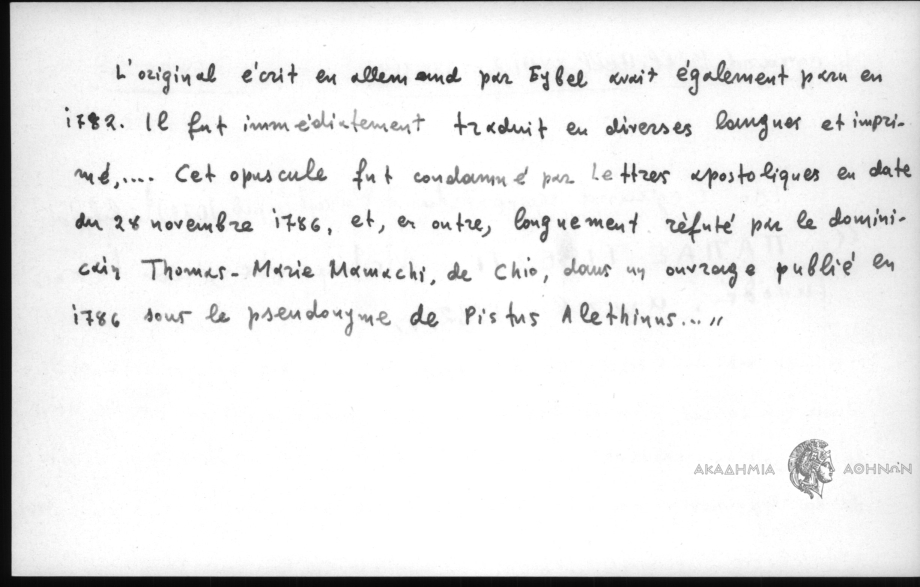 L'original écrit en allemand par Eybel avait également paru en
1782. Il fut immédiatement traduit en diverses langues et impri-
mé,.... Cet opuscule fut condamné par Lettres apostoliques en date
du 28 novembre 1786, et, en outre, longuement réfuté par le domini-
cain Thomas-Marie Mamachi, de Chio, dans un ouvrage publié en
1786 sous le pseudonyme de Pistus Alethinus...„
ΑΚΑΔΗΜΙΑ ΑΘΗΝΩΝ